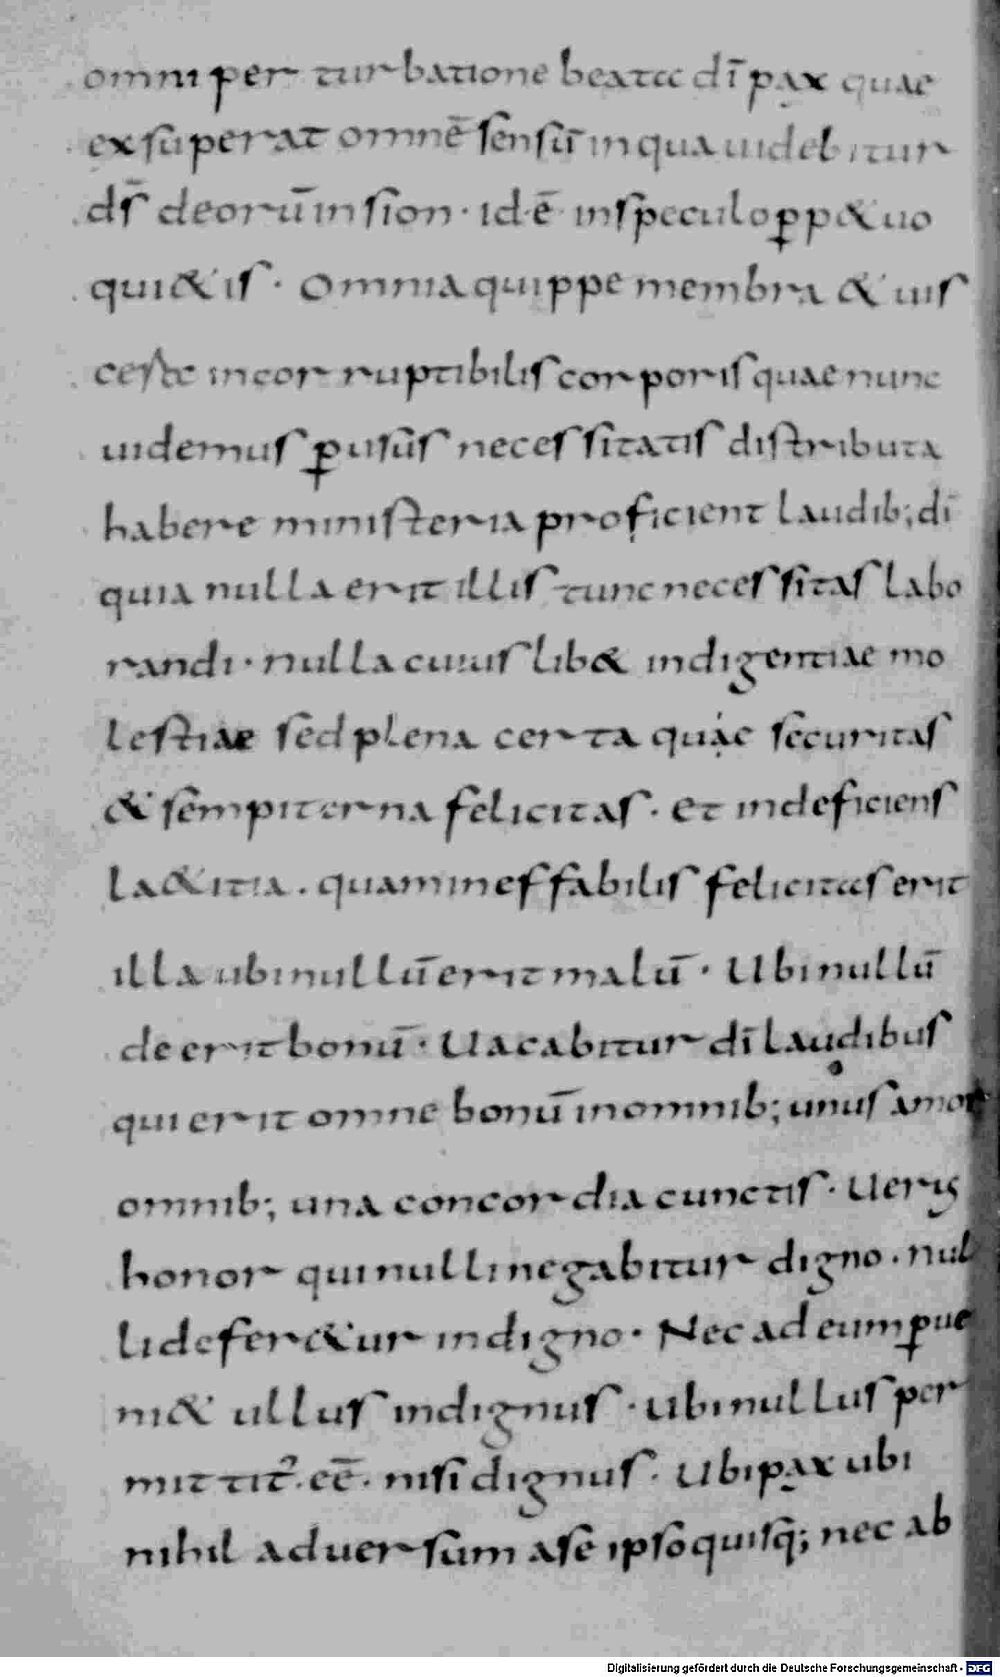 omni per turbatione beata dī pax quae
exsuperat omnē sensū in qua uidebitur
ds̄ deorū in sion · id · ē · in speculo ꝑp&uo
qui&is · Omnia quippe membra & uis
cera incorruptibilis corporis quae nunc
uidemus ꝑ usūs necessitatis distributa
habere ministeria proficient laudib; dī
quia nulla erit illis tunc necessitas labo
randi · nulla cuiuslib& indigentiae mo
lestiae sed plena certa quae securitas
& sempiterna felicitas · Et indeficiens
la&itia . quam ineffabilis felicitas erit
illa ubi nullū erit malū · Ubi nullū
deerit bonū · Uacabitur dī laudibus
qui erit omne bonū in omnib; unus amor
omnib; una concordia cunctis · Ueris
honor qui nulli negabitur digno · nul
li defer&ur indigno · Nec ad eum ꝑue
ni& ullus indignus · ubi nullus per
mittit᷑ · eē · nisi dignus · Ubi pax ubi
nihil aduersum a se ipso quisq; nec ab
Digitalisierung gefördert durch die Deutsche Forschungsgemeinschaft - DFG